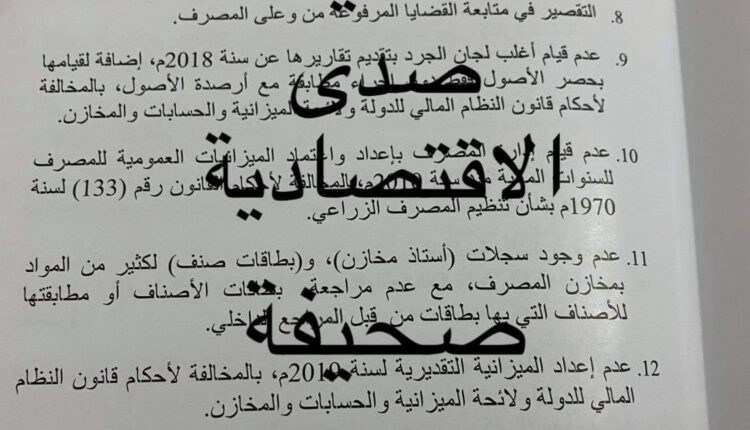 8. التقصير في متابعة القضايا المرفوعة من وعلى المصرف.
9. عدم قيام أغلب لجان الجرد بتقديم تقاريرها عن سنة 2018م، إضافة لقيامها
بحصر الأصول مطابقة مع أرصدة الأصول، بالمخالفة
لأحكام قانون النظام المالي للدولة ولائحة الميزانية والحسابات والمخازن.
10. عدم قيام المصرف بإعداد واعتماد الميزانيات العمومية للمصرف
للسنوات سنة بالمخالفة لأحكام قانون رقم (133) لسنة
1970م بشأن تنظيم المصرف الزراعي.
11. عدم وجود سجلات (أستاذ مخازن)، و(بطاقات صنف) لكثير من المواد
بمخازن المصرف، مع عدم مراجعة بطاقات الأصناف أو مطابقتها
للأصناف التي بها بطاقات من قبل المراجع الداخلي.
12. عدم إعداد الميزانية التقديرية لسنة 2019م، بالمخالفة لأحكام قانون النظام
المالي للدولة ولائحة الميزانية والحسابات والمخازن.
صدى
الاقتصادية
صحيفة